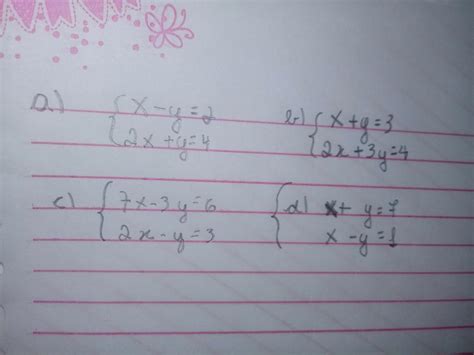 a) { x - y = 2
2x + y = 4
b) { x + y = 3
2x + 3y = 4
c) { 7x - 3y = 6
2x - y = 3
{ d) x + y = 7
x - y = 1